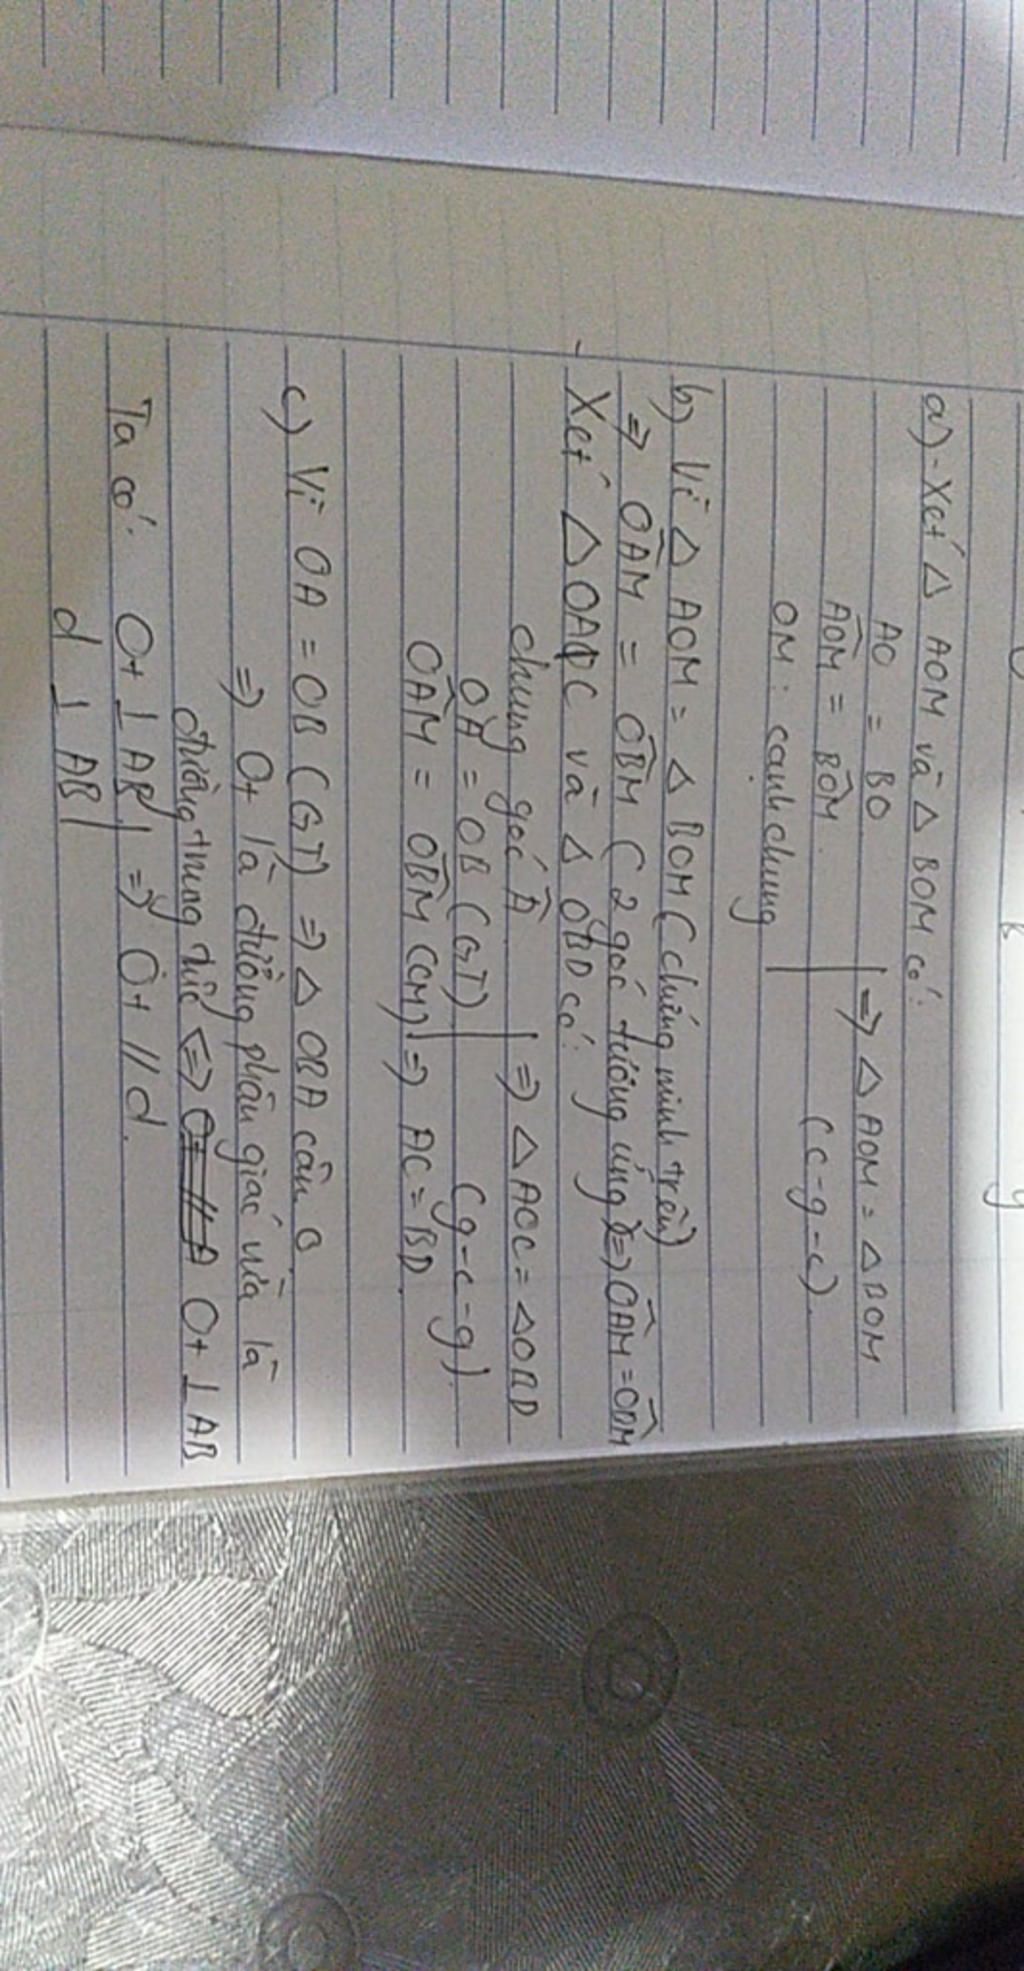 a) - Xét △ AOM và △ BOM có:
AO = BO
AÔM = BÔM | => △ AOM = △ BOM
OM : cạnh chung (c-g-c).
b) Vì △ AOM = △ BOM (chứng minh trên)
=> OÂM = OB̂M (2 góc tương ứng) => OÂM = OB̂M
- Xét △ OAC và △ OBD có:
chung góc Â | => △ AOC = △ OBD
OA = OB (GT) (g-c-g).
OÂM = OB̂M (cm) => AC = BD.
c) Vì OA = OB (GT) => △ OBA cân O
=> Ot là đường phân giác vừa là
đường trung trực <=> Ot ⊥ AB
Ta có: Ot ⊥ AB | => Ot // d.
d ⊥ AB